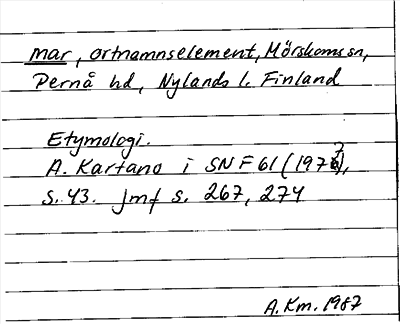 mar, ortnamnselement, Mörskoms sn,
Pernå hd, Nylands l. Finland
Etymologi.
A. Kartano i SNF 61 (1977),
s. 43. Jmf s. 267, 274
A. Km. 1987